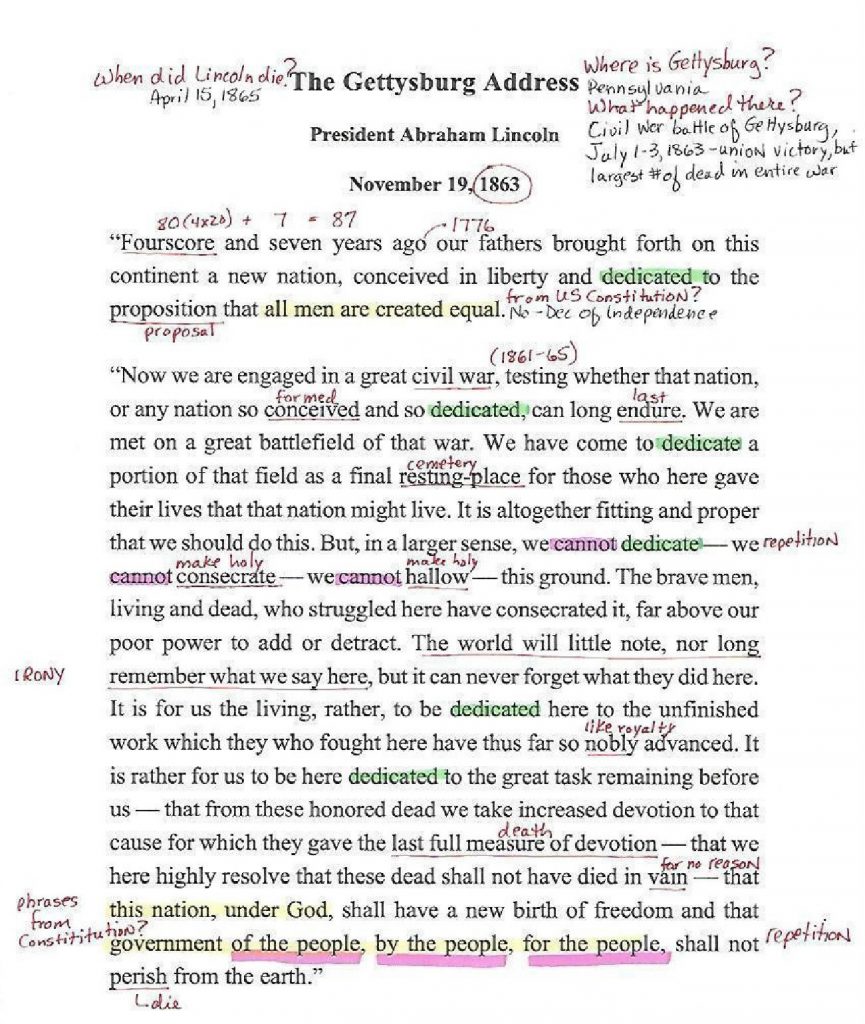 When did Lincoln die?
April 15, 1865
The Gettysburg Address
Where is Gettysburg?
Pennsylvania
What happened there?
Civil War battle of Gettysburg,
July 1-3, 1863 - union victory, but
largest # of dead in entire war
President Abraham Lincoln
November 19, 1863
80 (4x20) + 7 = 87
1776
“Fourscore and seven years ago our fathers brought forth on this
continent a new nation, conceived in liberty and dedicated to the
proposition that all men are created equal.
from US Constitution?
No - Dec of Independence
proposal
(1861-65)
“Now we are engaged in a great civil war, testing whether that nation,
formed last
or any nation so conceived and so dedicated, can long endure. We are
met on a great battlefield of that war. We have come to dedicate a
cemetery
portion of that field as a final resting-place for those who here gave
their lives that that nation might live. It is altogether fitting and proper
that we should do this. But, in a larger sense, we cannot dedicate — we repetition
make holy make holy
cannot consecrate — we cannot hallow — this ground. The brave men,
living and dead, who struggled here have consecrated it, far above our
poor power to add or detract. The world will little note, nor long
IRONY
remember what we say here, but it can never forget what they did here.
It is for us the living, rather, to be dedicated here to the unfinished
like royalty
work which they who fought here have thus far so nobly advanced. It
is rather for us to be here dedicated to the great task remaining before
us — that from these honored dead we take increased devotion to that
death
cause for which they gave the last full measure of devotion — that we
for no reason
here highly resolve that these dead shall not have died in vain — that
phrases
from
Constititution?
this nation, under God, shall have a new birth of freedom and that
government of the people, by the people, for the people, shall not repetition
perish from the earth.”
die